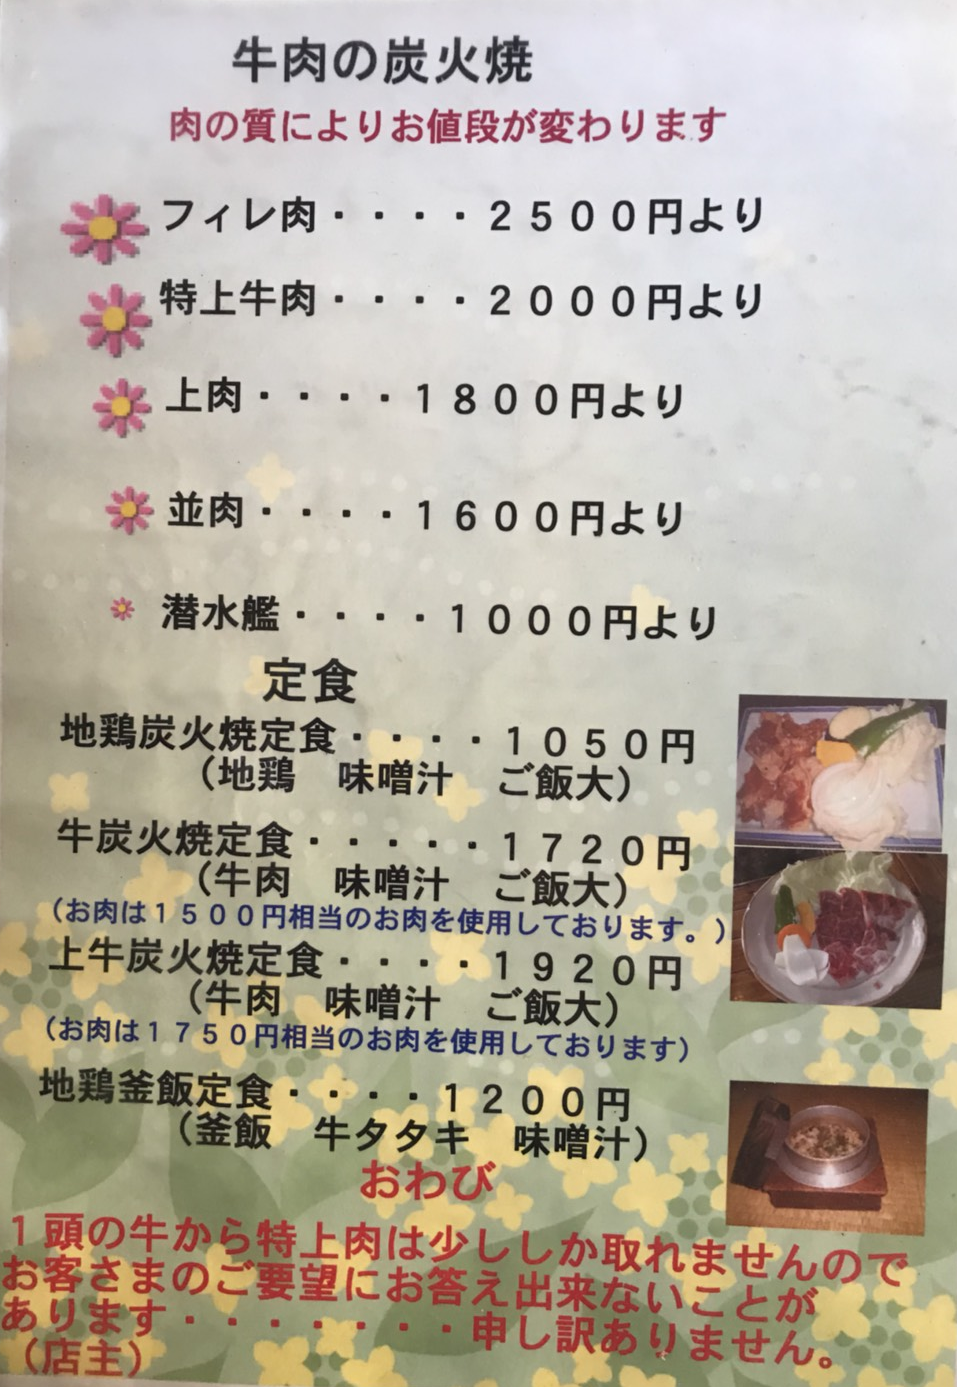 牛肉の炭火焼
肉の質によりお値段が変わります
フィレ肉・・・・２５００円より
特上牛肉・・・・２０００円より
上肉・・・・１８００円より
並肉・・・・１６００円より
潜水艦・・・・１０００円より
定食
地鶏炭火焼定食・・・・１０５０円
（地鶏　味噌汁　ご飯大）
牛炭火焼定食・・・・・１７２０円
（牛肉　味噌汁　ご飯大）
（お肉は１５００円相当のお肉を使用しております。）
上牛炭火焼定食・・・・１９２０円
（牛肉　味噌汁　ご飯大）
（お肉は１７５０円相当のお肉を使用しております）
地鶏釜飯定食・・・・１２００円
（釜飯　牛タタキ　味噌汁）
おわび
１頭の牛から特上肉は少ししか取れませんので
お客さまのご要望にお答え出来ないことが
あります・・・・・・・申し訳ありません。
（店主）